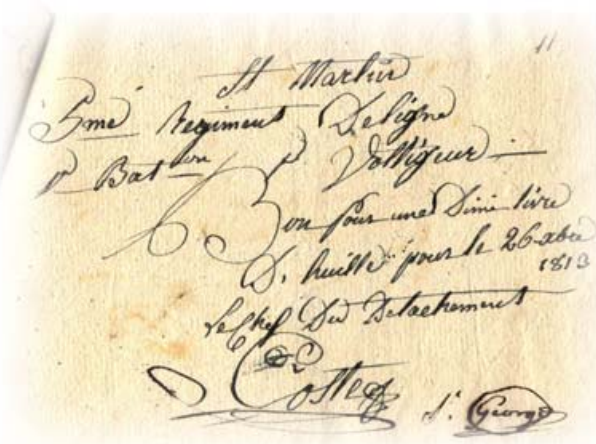 11
St Martin
5me Regiment Deligne
1r Baton Voltigeur
Bon pour une Dimi livre
D. huille pour le 26 xbre
1813
Le Chef Du Detachement
Coste
St. George